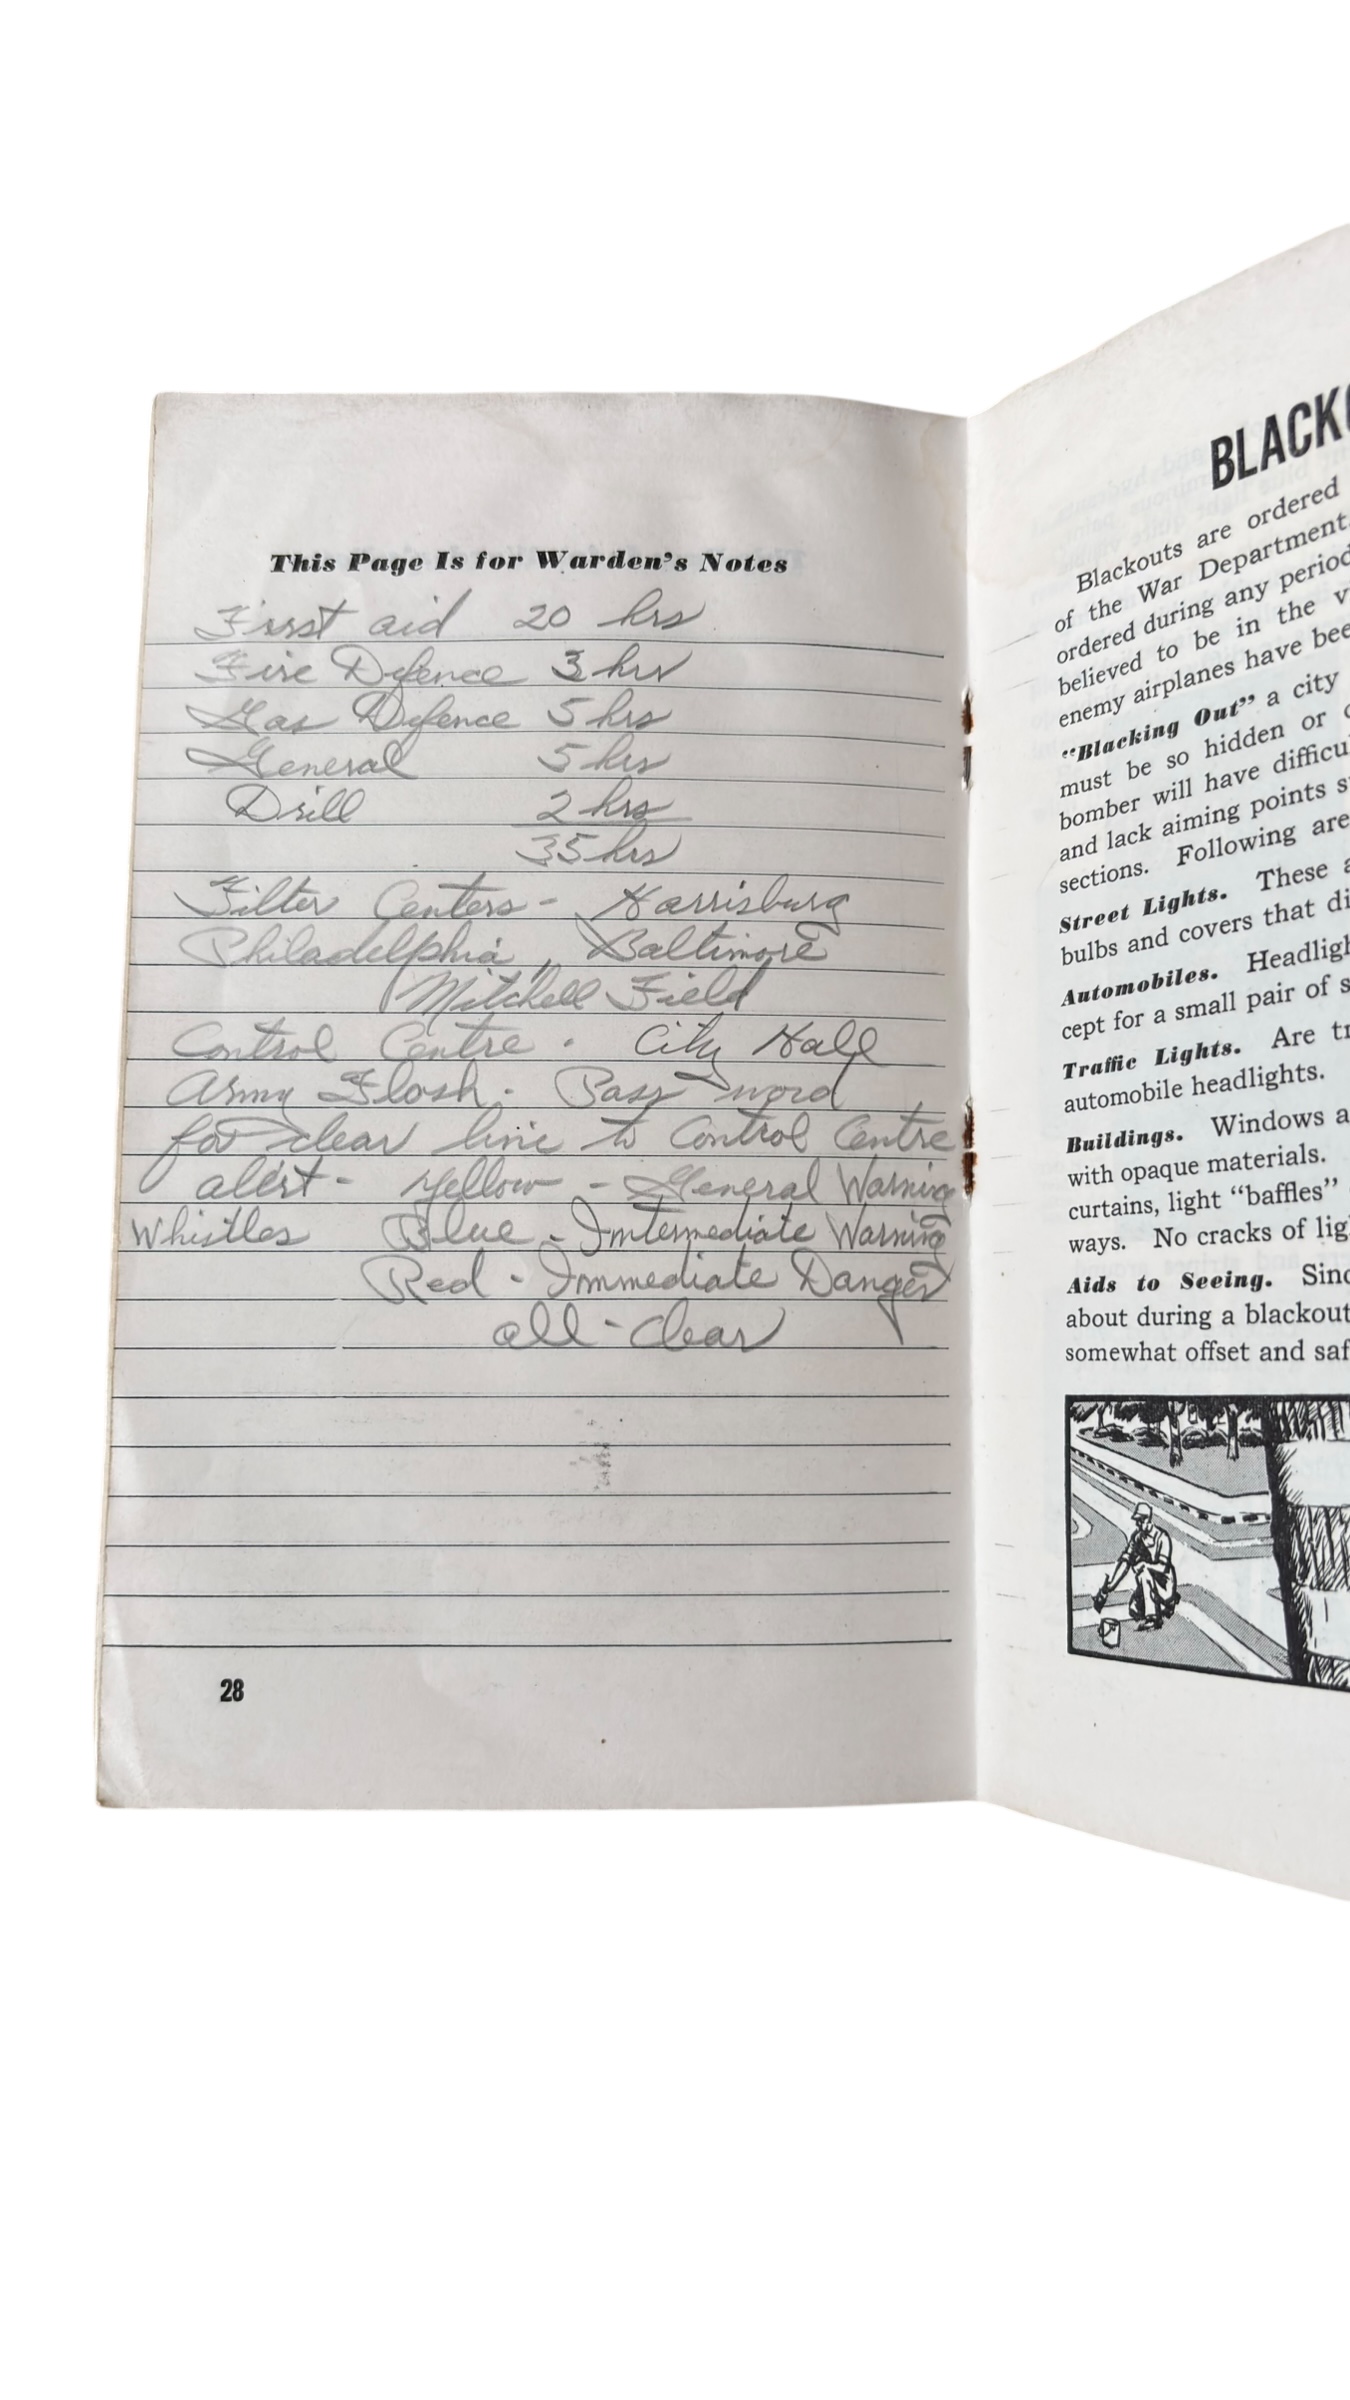 This Page Is for Warden's Notes
First aid 20 hrs
Fire Defence 3 hrs
Gas Defence 5 hrs
General 5 hrs
Drill 2 hrs
35 hrs
Filter Centers - Harrisburg
Philadelphia, Baltimore
Mitchell Field
Control Centre - City Hall
Army Flash - Pass word
for clear line to Control Centre
alert - Yellow - General Warning
Whistles Blue - Intermediate Warning
Red - Immediate Danger
all - clear
28
BLACKO
Blackouts are ordered
of the War Department.
ordered during any period
believed to be in the v
enemy airplanes have bee
"Blacking Out" a city
must be so hidden or c
bomber will have difficul
and lack aiming points s
sections. Following are
Street Lights. These a
bulbs and covers that di
Automobiles. Headligh
cept for a small pair of s
Traffic Lights. Are tr
automobile headlights.
Buildings. Windows a
with opaque materials.
curtains, light "baffles"
ways. No cracks of lig
Aids to Seeing. Sinc
about during a blackout
somewhat offset and saf